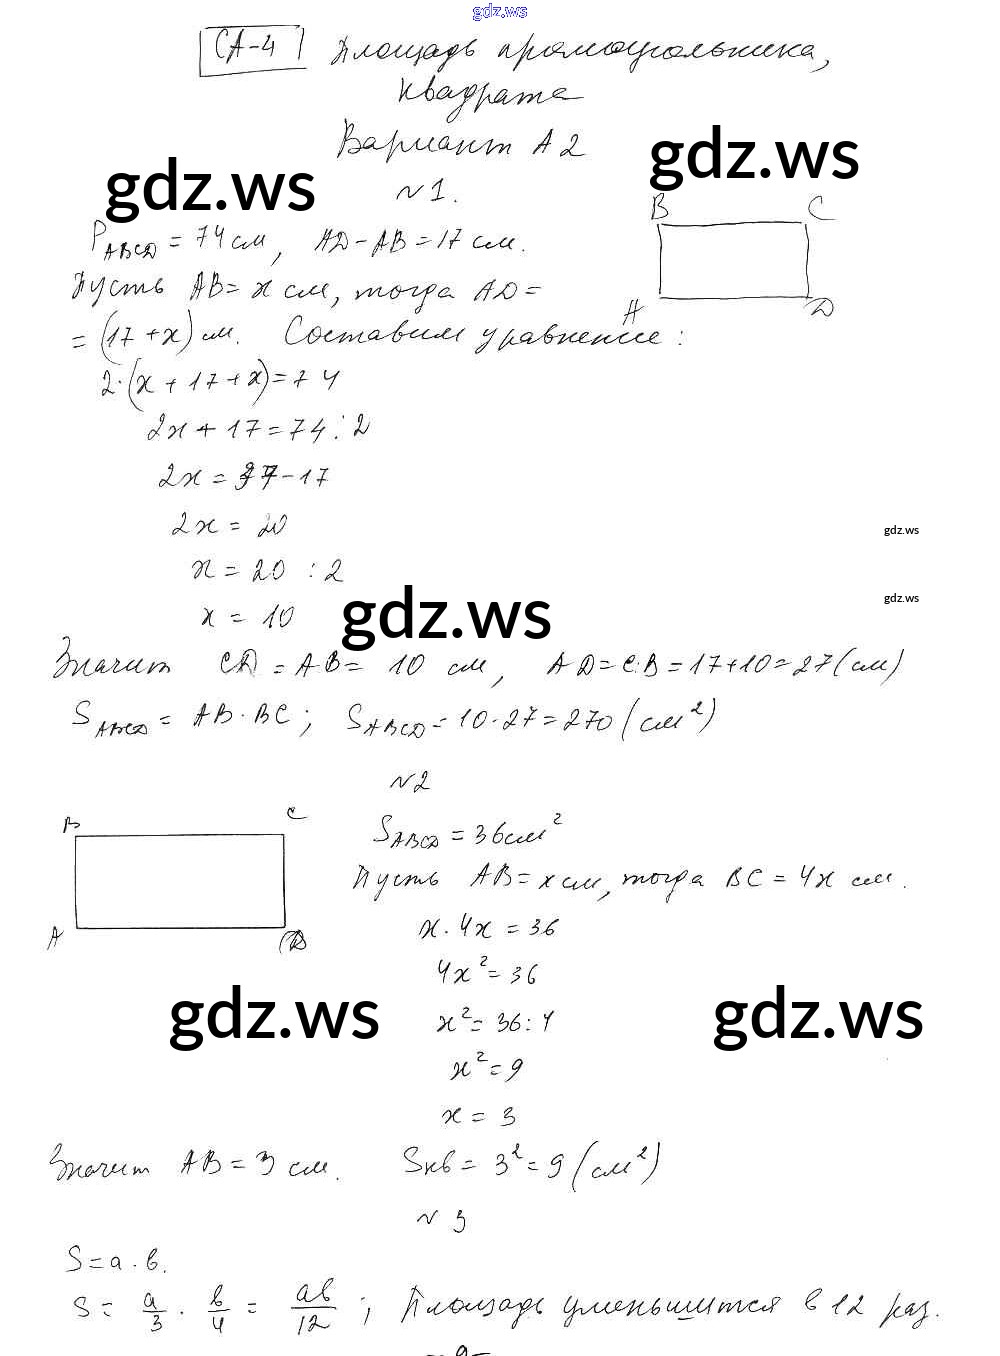 gdz.ws
СА-4 Площадь прямоугольника,
квадрата
Вариант А2
gdz.ws
gdz.ws
№1.
P_ABCD = 74 см, AD - AB = 17 см.
B C
A D
Пусть AB = x см, тогда AD =
= (17 + x) см. Составим уравнение:
2·(x + 17 + x) = 74
2x + 17 = 74 : 2
2x = 37 - 17
2x = 20
gdz.ws
x = 20 : 2
gdz.ws
x = 10
gdz.ws
Значит CD = AB = 10 см, AD = CB = 17 + 10 = 27 (см)
S_ABCD = AB · BC; S_ABCD = 10 · 27 = 270 (см²)
№2
B C
A D
S_ABCD = 36 см²
Пусть AB = x см, тогда BC = 4x см.
x · 4x = 36
4x² = 36
gdz.ws
gdz.ws
x² = 36 : 4
x² = 9
x = 3
Значит AB = 3 см. Sкв = 3² = 9 (см²)
№3
S = a · b.
S = a/3 · b/4 = ab/12; Площадь уменьшится в 12 раз.